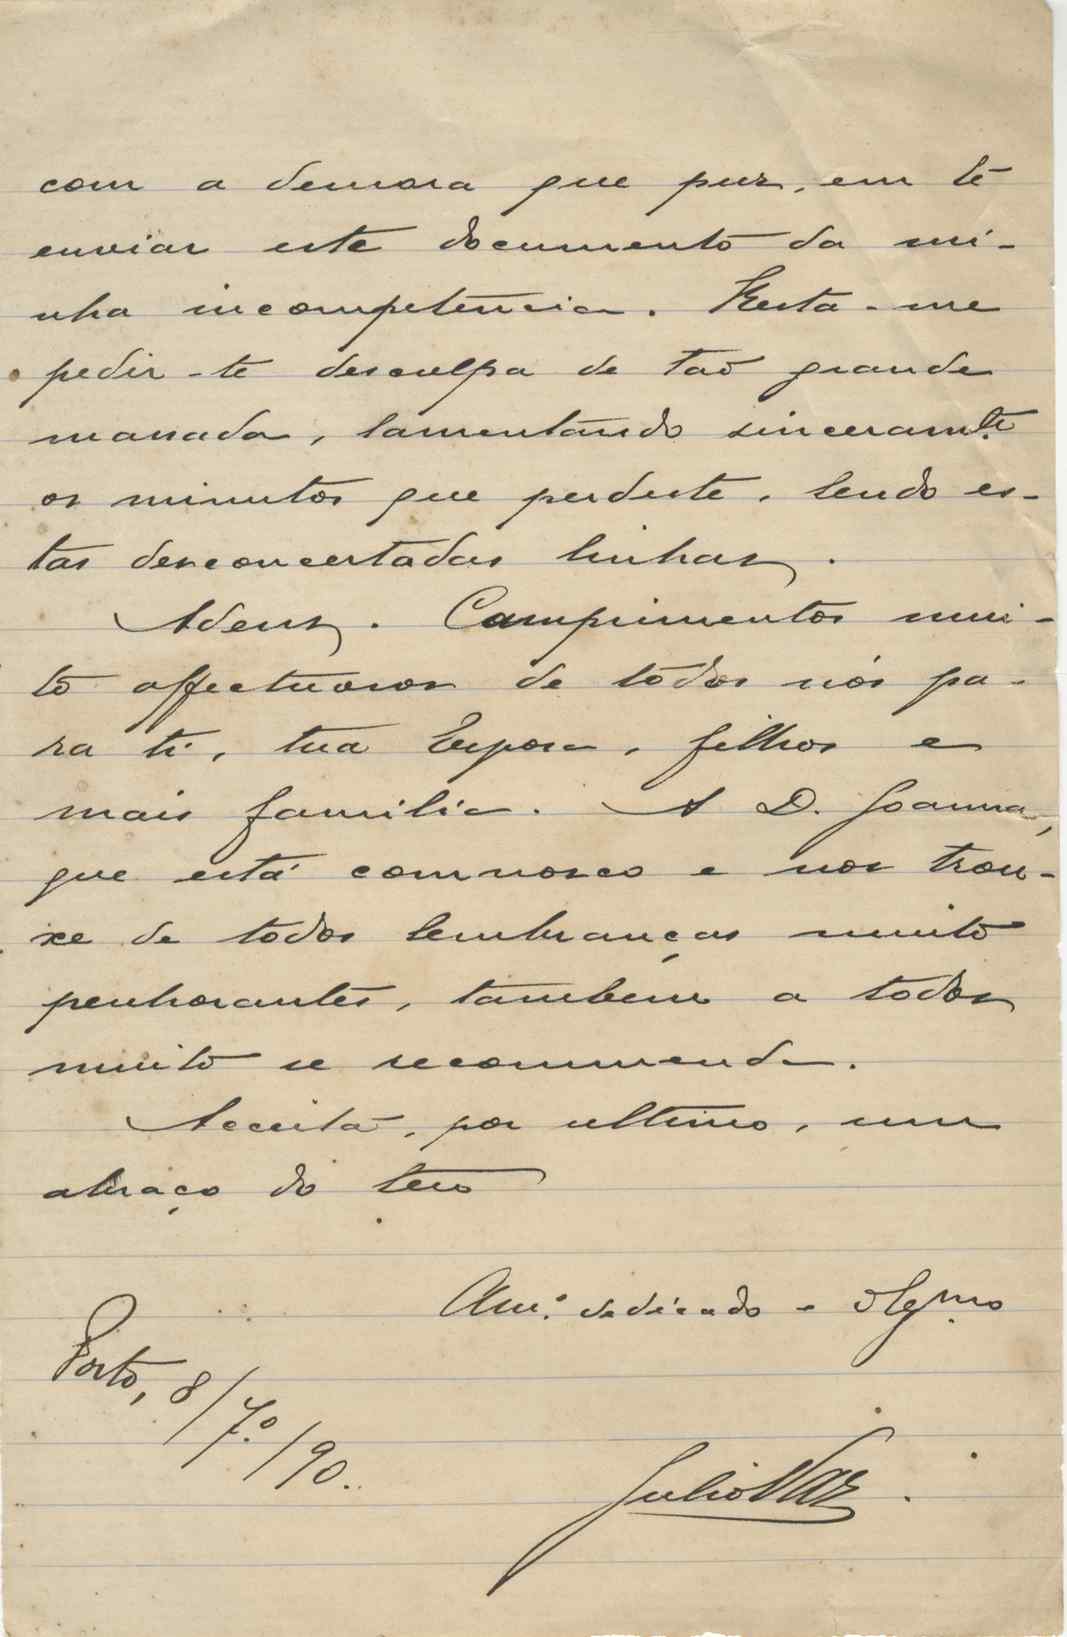 com a demora que puz, em te
enviar este documento da mi-
nha incompetencia. Resta-me
pedir-te desculpa de tão grande
massada, lamentando sinceramte.
os minutos que perdeste, lendo es-
tas desconcertadas linhas.
Adeus. Cumprimentos mui-
to affectuosos de todos nós pa-
ra ti, tua Esposa, filhos e
mais familia. A D. Joanna,
que está comnosco e nos trou-
xe de todos lembranças muito
penhorantes, tambem a todos
muito se recommenda.
Acceita, por ultimo, um
abraço do teu
Amo. dedicado e
Porto, 8/7o./90.
Julio Vaz.